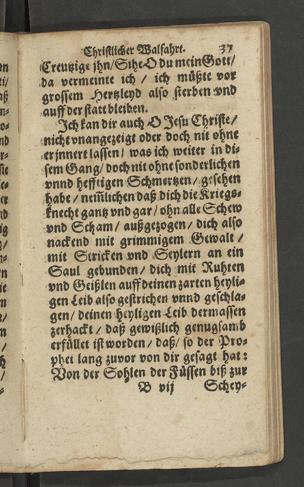 Christlicher Walfahrt. 37
Creutzige jhn/ Sihe O du mein Gott/
da vermeinte ich / ich müßte vor
grossem Hertzleyd also sterben vnd
auff der statt bleiben.
Ich kan dir auch O Jesu Christe/
nicht vnangezeigt oder doch nit ohne
erjnnert lassen/ was ich weiter in di-
sem Gang/ doch nit ohne sonderlichen
vnnd hefftigen Schmertzen/ gesehen
habe/ nemlichen daß dich die Kriegs-
knecht gantz vnd gar/ ohn alle Schew
vnd Scham/ außgezogen/ dich also
nackend mit grimmigem Gewalt/
mit Stricken vnd Seylern an ein
Saul gebunden/ dich mit Ruhten
vnd Geißlen auff deinen zarten heyli-
gen Leib also gestrichen vnnd geschla-
gen/ deinen heyligen Leib dermassen
zerhackt/ daß gewißlich genugsamb
erfüllet ist worden/ daß/ so der Pro-
phet lang zuvor von dir gesagt hat:
Von der Sohlen der Füssen biß zur
B vij Schey-